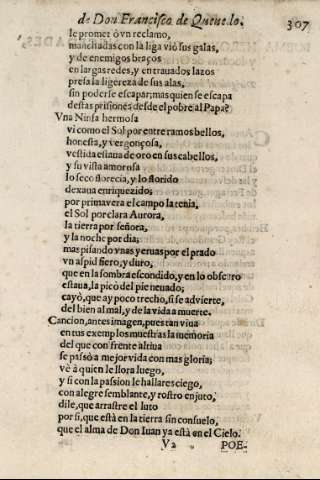 de Don Francisco de Queuedo. 307
le prometiò vn reclamo,
manchadas con la liga viò sus galas,
y de enemigos braços
en largas redes, y entrauados lazos
presa la ligereza de sus alas,
sin poderse escapar; mas quien se escapa
destas prisiones desde el pobre al Papa?
Vna Ninfa hermosa
vi como el Sol por entre ramos bellos,
honesta, y vergonçosa,
vestida estaua de oro en sus cabellos,
y su vista amorosa
lo seco florecia, y lo florido
dexaua enriquezido;
por primavera el campo la tenia,
el Sol por clara Aurora,
la tierra por señora,
y la noche por dia;
mas pisando vnas yeruas por el prado
vn aspid fiero, y duro,
que en la sombra escondido, y en lo obscuro
estaua, la picò del pie neuado;
cayò, que ay poco trecho, si se advierte,
del bien al mal, y de la vida a muerte.
Cancion, antes imagen, pues tan viua
en tus exemplos muestras la memoria
del que con frente altiua
se passò a mejor vida con mas gloria;
vè à quien le llora luego,
y si con la passion le hallares ciego,
con alegre semblante, y rostro enjuto,
dile, que arrastre el luto
por si, que està en la tierra sin consuelo,
que el alma de Don Iuan ya està en el Cielo.
V2 POE-